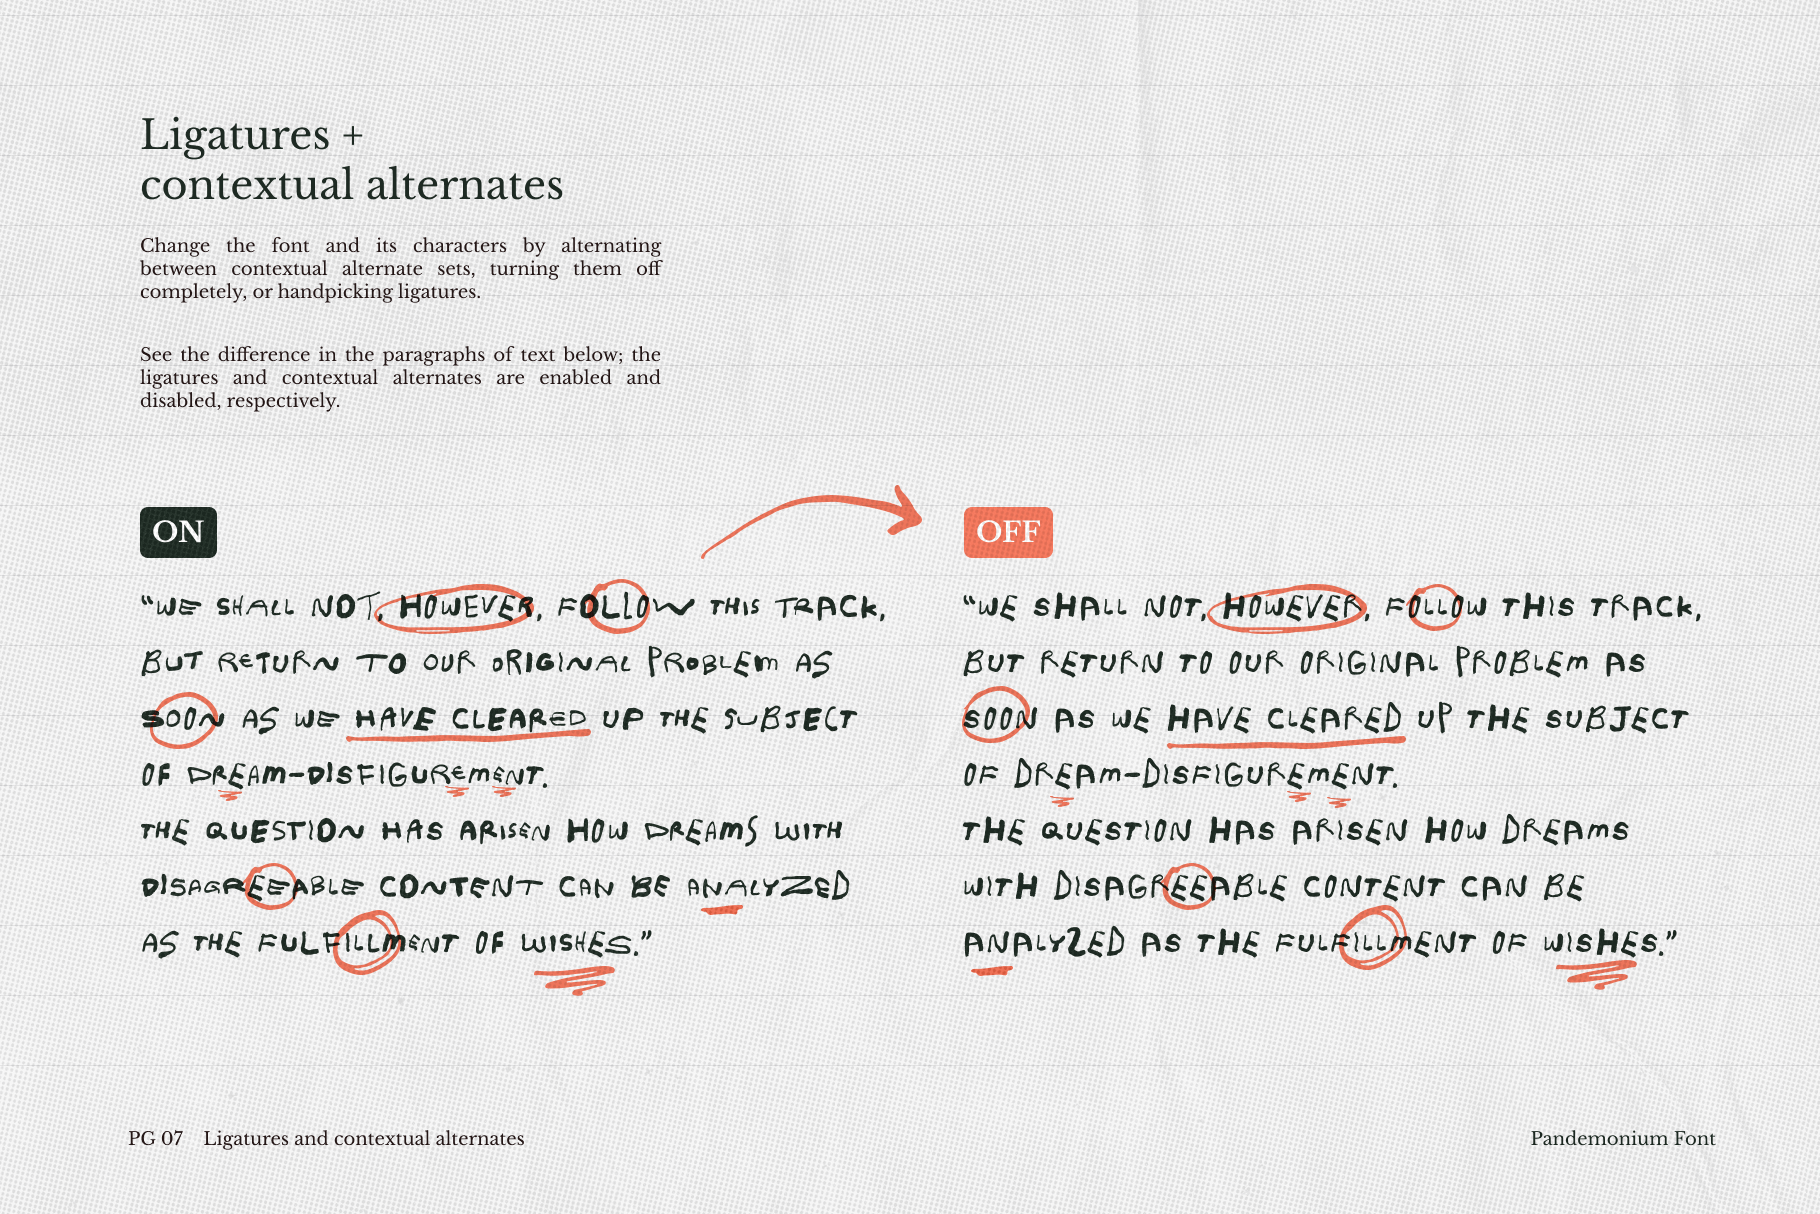 Ligatures +
contextual alternates
Change the font and its characters by alternating
between contextual alternate sets, turning them off
completely, or handpicking ligatures.
See the difference in the paragraphs of text below; the
ligatures and contextual alternates are enabled and
disabled, respectively.
ON
“WE SHALL NOT, HOWEVER, FOLLOW THIS TRACK,
BUT RETURN TO OUR ORIGINAL PROBLEM AS
SOON AS WE HAVE CLEARED UP THE SUBJECT
OF DREAM-DISFIGUREMENT.
THE QUESTION HAS ARISEN HOW DREAMS WITH
DISAGREEABLE CONTENT CAN BE ANALYZED
AS THE FULFILLMENT OF WISHES.”
OFF
“WE SHALL NOT, HOWEVER, FOLLOW THIS TRACK,
BUT RETURN TO OUR ORIGINAL PROBLEM AS
SOON AS WE HAVE CLEARED UP THE SUBJECT
OF DREAM-DISFIGUREMENT.
THE QUESTION HAS ARISEN HOW DREAMS
WITH DISAGREEABLE CONTENT CAN BE
ANALYZED AS THE FULFILLMENT OF WISHES.”
PG 07 Ligatures and contextual alternates
Pandemonium Font